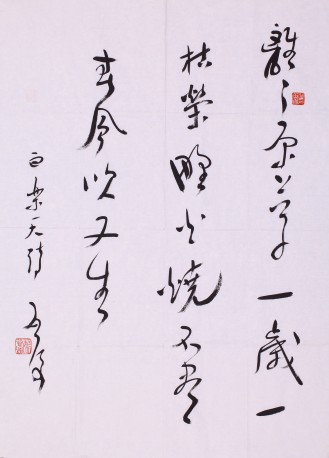 離〻原上草一歲一
枯榮野火燒不盡
春風吹又生
白樂天詩